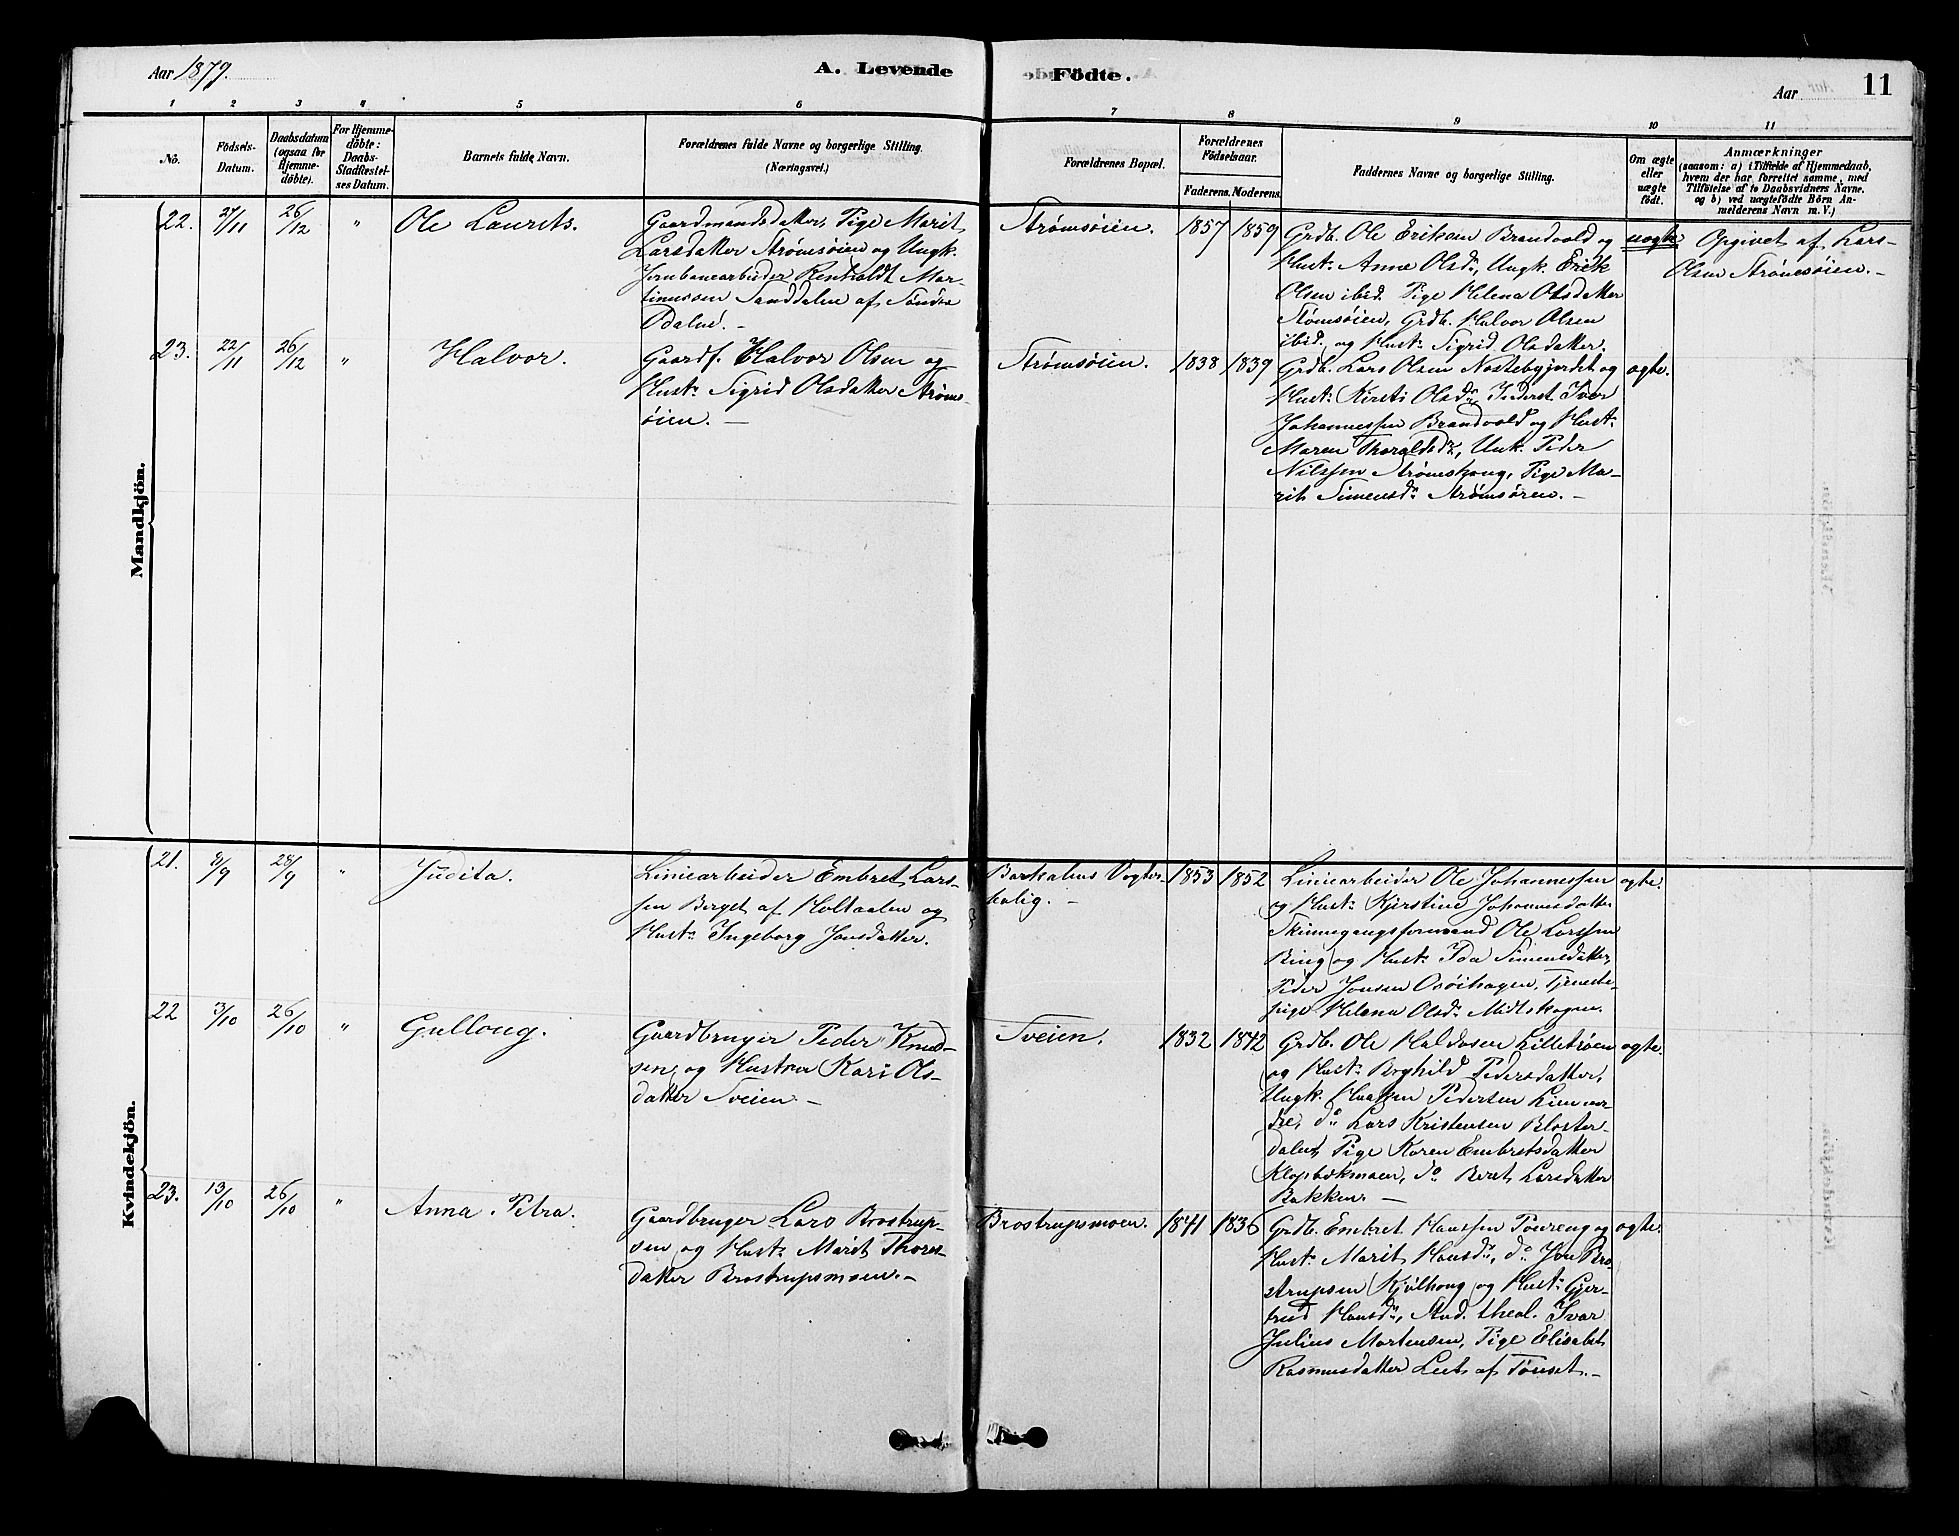 Aar 1879.
A. Levende Födte.
Aar
11
1 2 3 4 5 6 7 8 9 10 11
No.
Födsels-
Datum.
Daabsdatum
(ogsaa for
Hjemme-
döbte).
For Hjemme-
döbte:
Daabs-
Stadfæstel-
ses Datum.
Barnets fulde Navn.
Forældrenes fulde Navne og borgerlige Stilling.
(Næringsvei.)
Forældrenes Bopæl.
Forældrenes
Födselsaar.
Faderens. Moderens.
Faddernes Navne og borgerlige Stilling.
Om ægte
eller
uægte
födt.
Anmærkninger
(saasom: a) i Tilfælde af Hjemmedaab,
hvem der har forrettet samme, med
Tilföielse af to Daabsvidners Navne.
og b) ved uægtefödte Börn An-
melderens Navn m. V.)
Mandkjön.
22.
27/11
26/12
"
Ole Laurits.
Gaardmandsdatter, Pige Marit
Larsdatter Strømsøien og Ungk.
Jernbanearbeider Renhaldt Mar-
tinussen Sanddalen af Søndre
Odalen. –
Strømsøien.
1857
1859
Grdb. Ole Eriksen Brandvold og
Hust: Anne Olsdr, Ungk. Erik
Olsen ibid. Pige Helena Olsdatter
Strømsøien, Grdb. Halvor Olsen
ibid. og Hust: Sigrid Olsdatter.
uægte
Opgivet af Lars
Olsen Strømsøien. –
23.
22/11
26/12
"
Halvor.
Gaardf. Halvor Olsen og
Hust: Sigrid Olsdatter Strøms-
øien. –
Strømsøien.
1838
1839
Grdb. Lars Olsen Nostebygjerdet og
Hust: Kirsti Olsdr, Iver
Johannessen Brandvold og Hust:
Maren Thoraldsdr, Unk. Peder
Nilssen Strømshaug, Pige Ma-
rit Simensdr Strømsøien. –
ægte.
Kvindekjön.
21.
8/9
28/9
"
Judita.
Liniearbeider Embret Lars-
sen Berget af Holtaalen og
Hust: Ingeborg Jonsdatter.
Barkalens Vogter-
bolig. –
1853
1852
Liniearbeider Ole Johannessen
og Hust: Kjerstine Johannesdatter
Skinnegangsformand Ole Larssen
Ring og Hust: Ida Simensdatter,
Peder Jonsen Osøihagen, Tjeneste-
pige Helena Olsdr Midtskogen.
ægte.
22
3/10
26/10
"
Gullaug.
Gaardbruger Peder Knud-
sen, og Hustru Kari Ols-
datter Sveien. –
Sveien.
1832
1842
Grdb. Ole Haldosen Lilletrøen
og Hust: Borghild Pedersdatter,
Ungk. Haagen Pedersen
do Lars Kristensen Bloster-
dalen, Pige Karen Embretsdatter
Klopbækmoen, do Beret Larsdatter
Bakken. –
ægte.
23.
13/10
26/10
"
Anna Petra.
Gaardbruger Lars Brostrup-
sen og Hust: Marit Thores-
datter Brostrupsmoen. –
Brostrupsmoen.
1841
1836
Grdb. Embret Hanssen Tøureng og
Hust: Marit Hansdr, do Jon Bro-
strupsen Kjølhaug og Hust: Gjer-
trud Hansdr, Stud. theol. Ivar
Julius Mortensen, Pige Elisabet
Rasmusdatter Leet af Tønset. –
ægte.